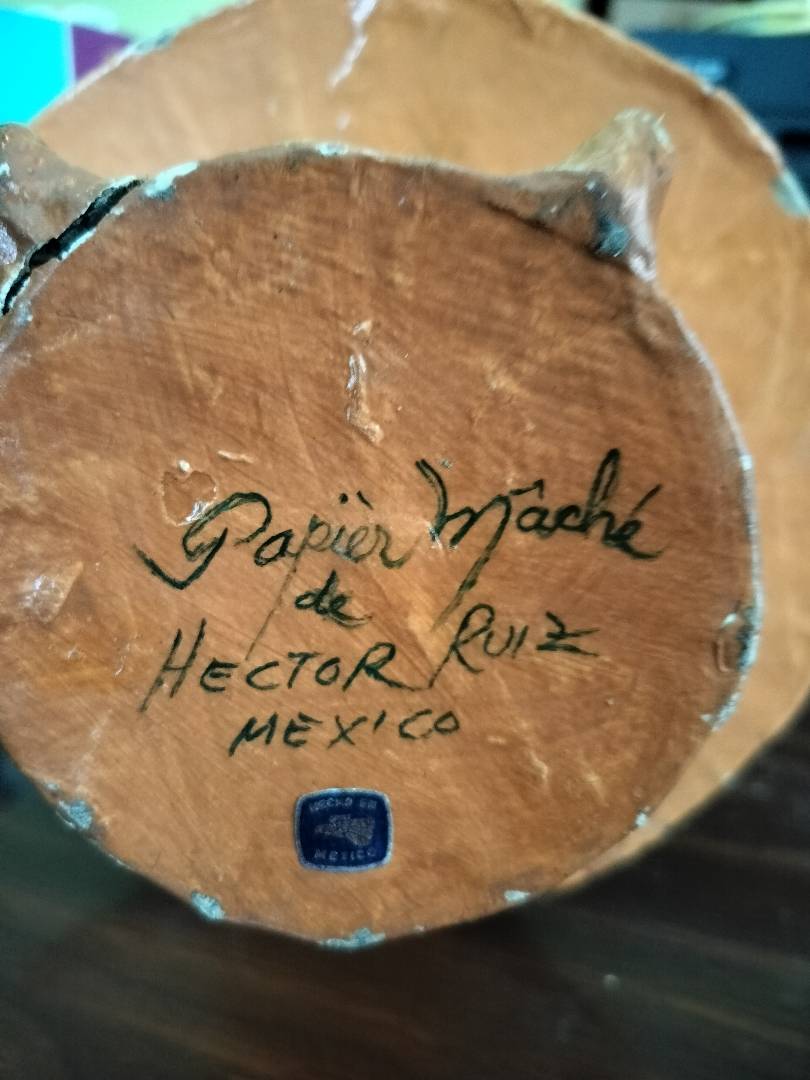 Papïèr Mâché
de
HECTOR RUIZ
MEXICO
HECHO EN
MEXICO